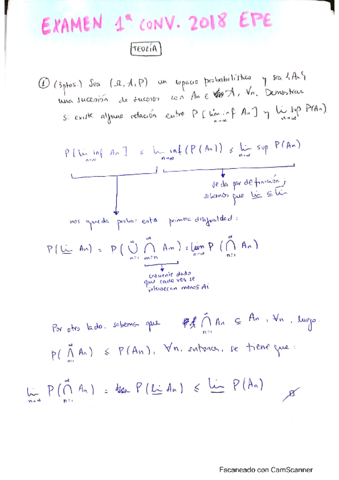 EXAMEN 1ª CONV. 2018 EPE
TEORÍA
① (3ptos.) Sea (Ω, A, P) un espacio probabilístico y sea {An}
una sucesión de sucesos con An ∈ A, ∀n. Demostrar
si existe alguna relación entre P[lim inf An] y lim sup P(An)
P[lim inf An] ≤ lim inf (P(An)) ≤ lim sup P(An)
se da por definición,
sabemos que lim ≤ lim
nos queda probar esta primera desigualdad:
P(lim An) = P(∪ ∩ An) = lim P(∩ An)
creciente dado
que cada vez se
intersecan menos Ai
Por otro lado, sabemos que ∩ An ⊆ An, ∀n, luego
P(∩ An) ≤ P(An), ∀n, entonces, se tiene que:
lim P(∩ An) = P(lim An) ≤ lim P(An)
Escaneado con CamScanner